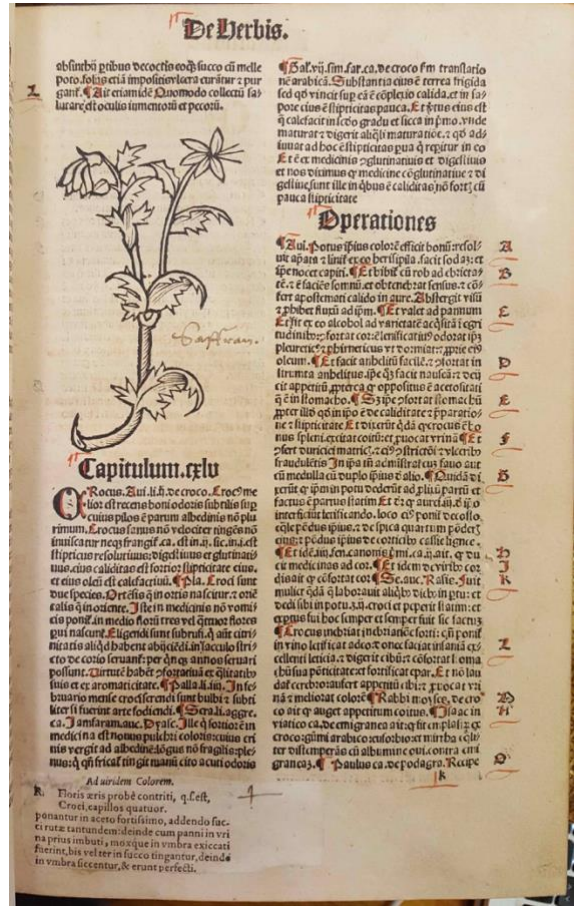 De Herbis.
absinthij ptibus decoctis eoq3 succo cū melle
poto. solis etiā impositis ulcera curātur ⁊ pur
gant̃. ¶Ait etiam idē Quomodo collectū sa-
lutare est oculis iumentorū et pecorū.
Saffran.
Capitulum.cxlv
CRocus. Aui.li.ij. de croco. Croc9 me
lior est recens boni odoris subtilis sup
cuius pilos ē parum albedinis nō plu
rimum. Crocus sanus nō velociter tingēs nō
stipticus resolutiuus: digestiuus et glutinati-
uus. eius caliditas est fortior stipticitate eius.
et eius oleū est calefactiuū. ¶Pla. Croci sunt
due species. Ortēsis q̄ in ortis nascitur. ⁊ oriē
calis q̄ in oriente. Iste in medicinis nō vomi
cis ponit̃. in medio florū tres vel q̄tuor flores
qui nascunt̃. Eligendi sunt subrufi. q̄ aūt citri-
nitatis aliqd habent abijciēdi. in sacculo stri-
cto de corio seruant̃: per qnq3 annos seruari
possunt. Uirtutē habēt ⁊fortatiuā ex q̄litatib9
suis et ex aromaticitate. ¶Palla.li.iij. In fe-
bruario mense croci serendi sunt bulbi ⁊ subti
liter si fuerint arte fodiendi. ¶Sera.li.aggre.
ca. Jamfaram. auc. Dyasc. Ille q̄ fortior ē in
medicina est nouus pulchri coloris: cuius cri
nis vergit ad albedinē. lōgus nō fragilis: ple-
nus: q̄ qñ fricat̃ tingit manū cito acuti odoris
Ad viridem Colorem.
R. Floris æris probè contriti, q.s. est,
Croci, capillos quatuor.
ponantur in aceto fortissimo, addendo suc-
ci rutæ tantundem: deinde cum panni in vri
na prius imbuti, moxque in vmbra exiccati
fuerint, bis vel ter in succo tingantur, deinde
in vmbra siccentur, & erunt perfecti.
¶Gal. vij. sim. far. ca. de croco fm translatio
nē arabicā. Substantia eius ē terrea frigida
sed qd vincit sup eā ē cōplexio calida. et in sa-
pore eius ē stipticitas pauca. Et ⁊tus eius est
q̄ calefacit in scdo gradu et sicca in pmo. vnde
maturat ⁊ digerit aliqli maturatiōe. ⁊ qd ad-
iuuat ad hoc ē stipticitas pua q̄ repitur in eo
Et ē ex medicinis ⁊glutinatiuis et digestiuis
et nos diximus q̄ medicine cōglutinatiue ⁊ di
gestiue sunt ille in qbus ē caliditas nō fort3 cū
pauca stipticitate
Operationes
¶Aui. Potus ipius colorē efficit bonū: resol-
ipe nocet capiti. ¶Et bibit̃ cū rob ad ebrieta-
tē. ⁊ ē faciēs somnū. et obtenebrat sensus. ⁊ cō-
fert apostemati calido in aure. Abstergit visū
⁊ phibet fluxū ad ipm. ¶Et valet ad pannum
Et fit ex eo alcohol ad varietatē acqsitā ī egri
tudinib9: ⁊fortat cor: ē letificatiu9 odorat ip3
pleuretic9 ⁊ phirneticus vt dormiat:
oleum. ¶Et facit anhelitū facilē. ⁊ ⁊fortat in
strumta anhelitus. ipe q3 facit nauseā: ⁊ deij
cit appetitū. ppterea q̄ oppositus ē acetositati
q̄ ē in stomacho. ¶S3 ipe ⁊fortat stomachū
ppter illd qd in ipo ē de caliditate ⁊ pparatio-
ne ⁊ stipticitate Et dixerūt qdā q̄ crocus ē bo
nus spleni. excitat coitū: et puocat vrinā ¶Et
⁊fert duriciei matricis: ⁊ ei9 ⁊strictiōi ⁊ vlcerib9
fraudulētis
cū medulla cū duplo ipius d'alio. ¶Quidā di
xerūt q̄ ipm in potu dederūt ad pliū partū et
factus ē partus statim
interficiūt letificando. loco ei9 ponit̃ de costo
eqle pōdus ipius. ⁊ de spica quartum pōder3
eius: ⁊ pōdus ipius de corticib9 cassie lignee.
¶Et idē. in sen. canonis pmi. ca. ij. ait. q̄ du
cit medicinas ad cor. ¶Et idem de virib9 cor
dis ait q̄ cōfortat cor ¶Se. auc. Rasis. Fuit
mulier qdā q̄ laborauit aliqb9 dieb9 in ptu: et
dedi sibi in potu. ʒ.ij. croci et peperit statim: et
exptus fui hoc semper et semper fuit sic factu3
¶Crocus inebriat inebriatiōe forti: cū ponit̃
in vino letificat adeo vt ⁊onec faciat insaniā ex
cellenti leticia. ⁊ digerit cibū: ⁊ cōfortat stoma
chū sua pōticitate et fortificat epar. Et nō lau
dat̃ cerebro: aufert appetitū cibi: ⁊ puocat vri
nā ⁊ meliorat colorē ¶Rabbi moyses. de cro
co ait q̄ auget appetitum coitus. ¶Isaac in
viatico ca. de emigranea ait: q̄ fit emplast3 ex
croco: gūmi arabico: euforbio: et mirrha eqli-
ter distemperās cū albumine oui. contra emi
graneā3. ¶Paulus ca. de podagra. Recipe
k
A
B
C
D
E
F
G
H
I
K
L
M
N
O